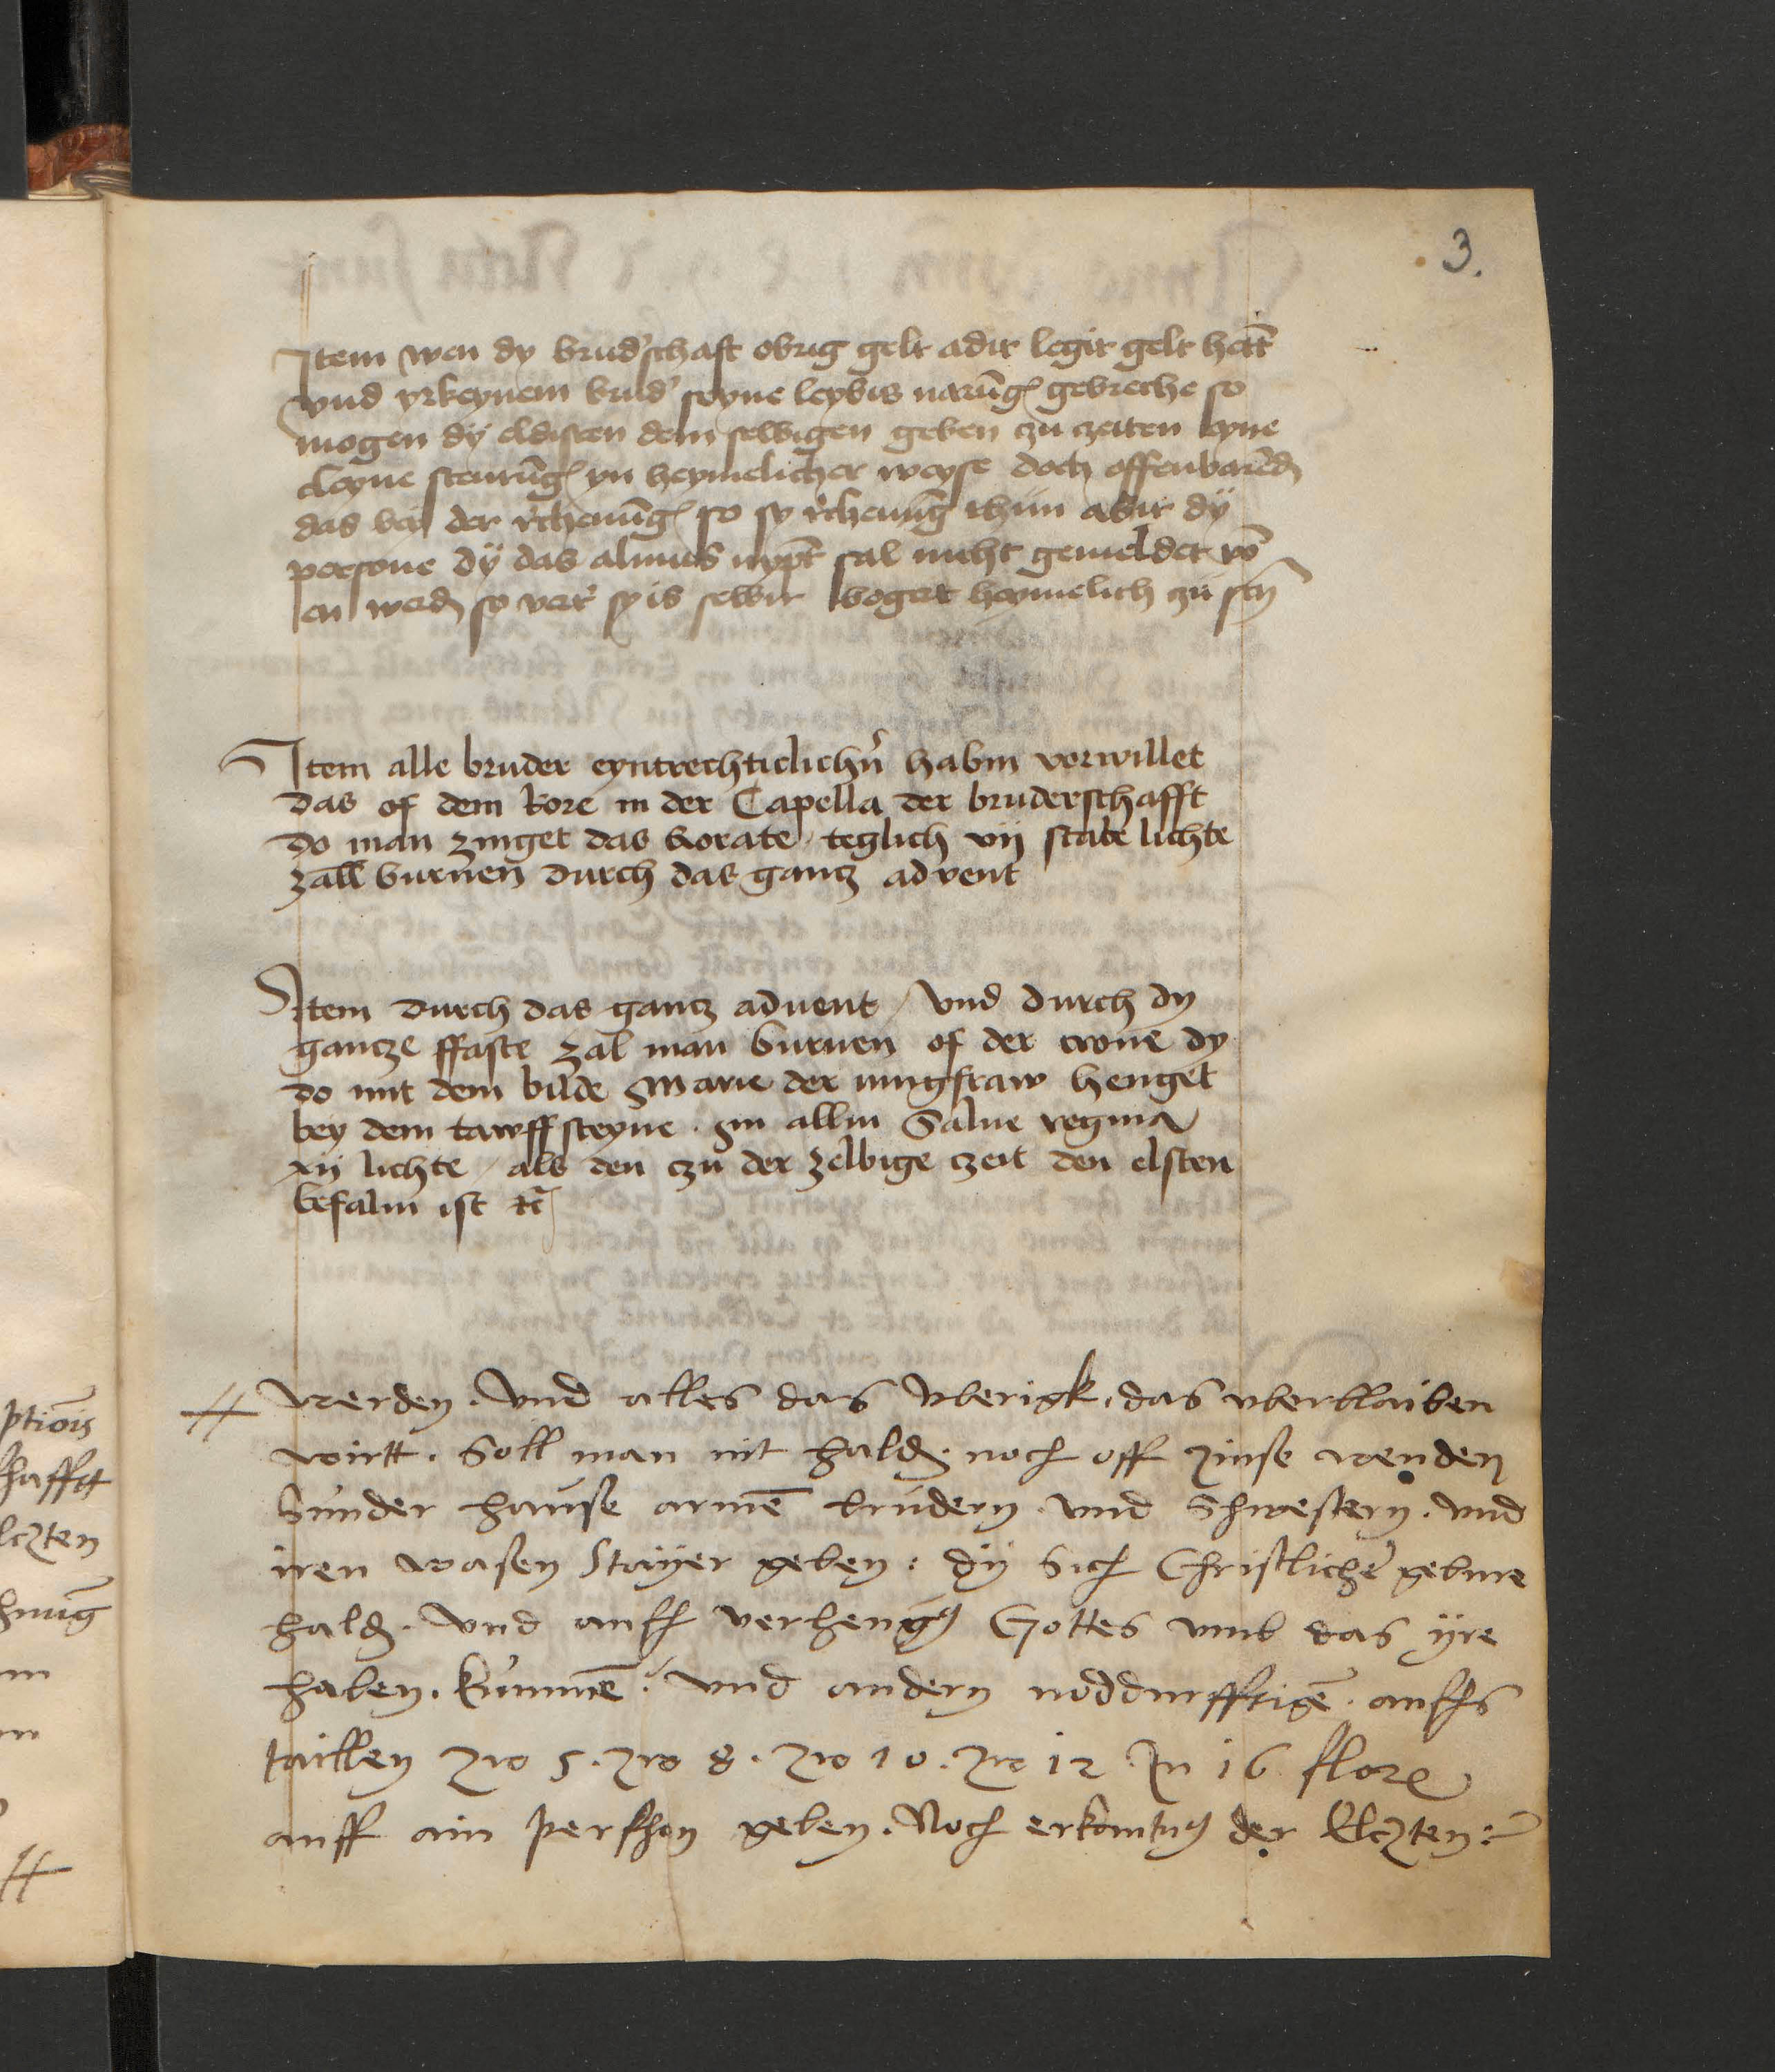 3.
Item wen dy brud'schaft obrig gelt adir legir gelt hett
vnd yrkeynem brud' seyne leybis narūg gebreche so
mogen dÿ eldisten dem selbigen geben czu czeiten eyne
cleyne steurūg yn heymelicher weyse doch offenbarēd
das bei der r'chenūg so sy r'chenūg thun abir dÿ
persone dÿ das almus nÿpt sal nicht gemeldet vō
en werdē so verr' sy is selbir begert heymelich czu seyn
Item alle bruder eyntrechticlichn̄ habin verwillet
das of dem kore in der Capella der bruderschafft
do man zinget das Rorate teglich vij stabe lichte
zall burnen durch das gantz advent
Item durch das gantz aduent / vnd durch dy
gantze ffaste zal man burnen of der crone dy
do mit dem bilde Marie der iungfraw henget
bey dem tawffsteyne . ym allin Salue regina
xij lichte / als den czu der zelbige czeit den elsten
befalin ist etc
werden . Vnd alles das Vberigk . das vberblaiben
wirtt . Soll man nit haldē . noch off zinse wenden
Sunder hause armē brudern . vnd Schwestern . vnd
iren wasen Staÿer geben : dÿ Sich Christlicher gebure
haldē . Vnd auss verheng Gottes vmb das ÿre
haben . kummē : vnd andern noddurfftigē . auffs
taillen zro 5 . zro 8 . zro 10 . zro 12 . In 16 flore
auff ain pershon geben . Noch erkantnus der Elczten :
ptiōis
hafftt
lczten
hnūg